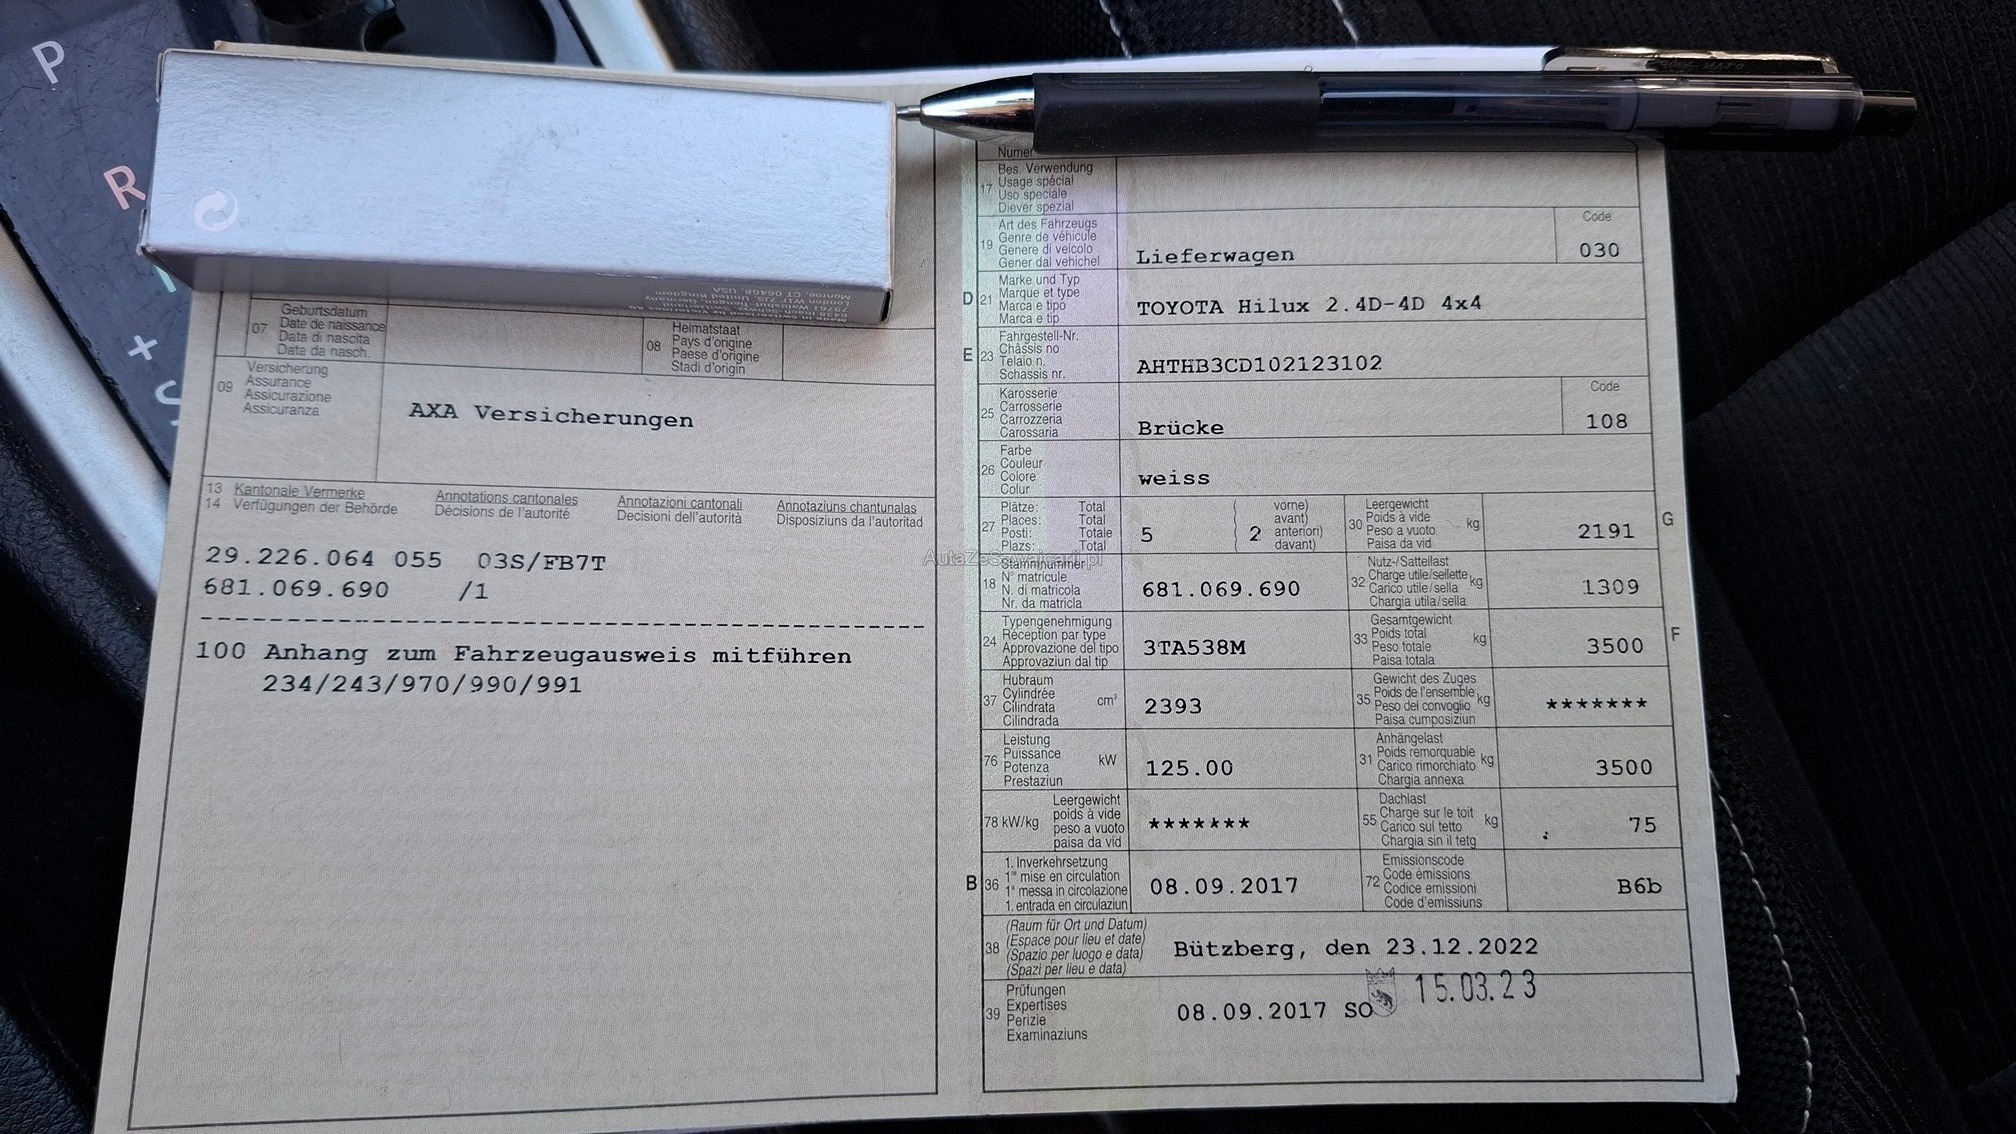 P
R
+
S
Monroe, CT 06468, USA
London W1F 7JS, United Kingdom
Geburtsdatum
07 Date de naissance
Data di nascita
Data da nasch.
Heimatstaat
08 Pays d'origine
Paese d'origine
Stadi d'origin
Versicherung
09 Assurance
Assicurazione
Assicuranza
AXA Versicherungen
13 Kantonale Vermerke Annotations cantonales Annotazioni cantonali Annotaziuns chantunalas
14 Verfügungen der Behörde Décisions de l'autorité Decisioni dell'autorità Disposiziuns da l'autoritad
29.226.064 055 03S/FB7T
681.069.690 /1
100 Anhang zum Fahrzeugausweis mitführen
234/243/970/990/991
Numer
Bes. Verwendung
17 Usage spécial
Uso speciale
Diever spezial
Art des Fahrzeugs
19 Genre de véhicule
Genere di veicolo
Gener dal vehichel
Lieferwagen
Code
030
Marke und Typ
D 21 Marque et type
Marca e tipo
Marca e tip
TOYOTA Hilux 2.4D-4D 4x4
Fahrgestell-Nr.
E 23 Châssis no
Telaio n.
Schassis nr.
AHTHB3CD102123102
Karosserie
25 Carrosserie
Carrozzeria
Carossaria
Brücke
Code
108
Farbe
26 Couleur
Colore
Colur
weiss
Plätze: Total
27 Places: Total
Posti: Totale
Plazs: Total
5 ( 2
vorne)
avant)
anteriori)
davant)
Leergewicht
30 Poids à vide kg
Peso a vuoto
Paisa da vid
2191
G
AutaZeSzwajcarii.pl
Stammnummer
18 N° matricule
N. di matricola
Nr. da matricla
681.069.690
Nutz-/Sattellast
32 Charge utile/sellette kg
Carico utile/sella
Chargia utila/sella
1309
Typengenehmigung
24 Réception par type
Approvazione del tipo
Approvaziun dal tip
3TA538M
Gesamtgewicht
33 Poids total kg
Peso totale
Paisa totala
3500
F
Hubraum
37 Cylindrée cm³
Cilindrata
Cilindrada
2393
Gewicht des Zuges
35 Poids de l'ensemble kg
Peso del convoglio
Paisa cumposiziun
*******
Leistung
76 Puissance kW
Potenza
Prestaziun
125.00
Anhängelast
31 Poids remorquable kg
Carico rimorchiato
Chargia annexa
3500
Leergewicht
78 kW/kg poids à vide
peso a vuoto
paisa da vid
*******
Dachlast
55 Charge sur le toit kg
Carico sul tetto
Chargia sin il tetg
75
1. Inverkehrsetzung
B 36 1re mise en circulation
1a messa in circolazione
1. entrada en circulaziun
08.09.2017
Emissionscode
72 Code émissions
Codice emissioni
Code d'emissiuns
B6b
(Raum für Ort und Datum)
38 (Espace pour lieu et date)
(Spazio per luogo e data)
(Spazi per lieu e data)
Bützberg, den 23.12.2022
Prüfungen
39 Expertises
Perizie
Examinaziuns
08.09.2017 SO
15.03.23